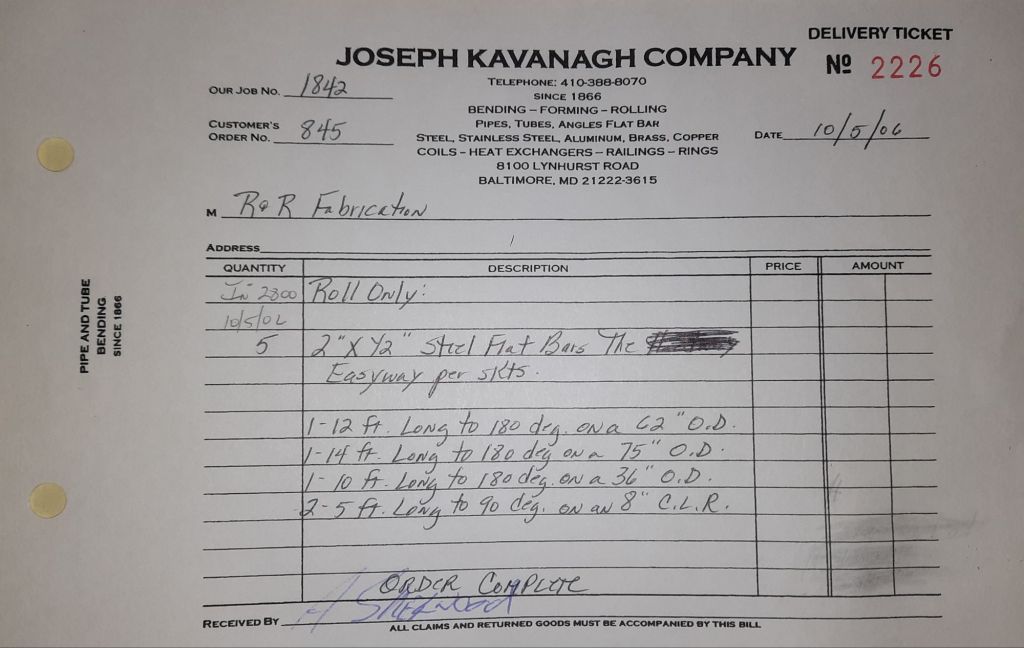 DELIVERY TICKET
JOSEPH KAVANAGH COMPANY
Nº 2226
TELEPHONE: 410-388-8070
SINCE 1866
BENDING – FORMING – ROLLING
PIPES, TUBES, ANGLES FLAT BAR
STEEL, STAINLESS STEEL, ALUMINUM, BRASS, COPPER
COILS – HEAT EXCHANGERS – RAILINGS – RINGS
8100 LYNHURST ROAD
BALTIMORE, MD 21222-3615
OUR JOB NO. 1842
CUSTOMER'S
ORDER NO. 845
DATE 10/5/06
M R&R Fabrication
ADDRESS
PIPE AND TUBE
BENDING
SINCE 1866
QUANTITY DESCRIPTION PRICE AMOUNT
In 2800 Roll Only:
10/5/06
5 2" X 1/2" Steel Flat Bars The
Easyway per skts.
1-12 ft. Long to 180 deg. on a 62" O.D.
1-14 ft. Long to 180 deg on a 75" O.D.
1-10 ft. Long to 180 deg. on a 36" O.D.
2-5 ft. Long to 90 deg. on an 8" C.L.R.
ORDER COMPLETE
RECEIVED BY
ALL CLAIMS AND RETURNED GOODS MUST BE ACCOMPANIED BY THIS BILL